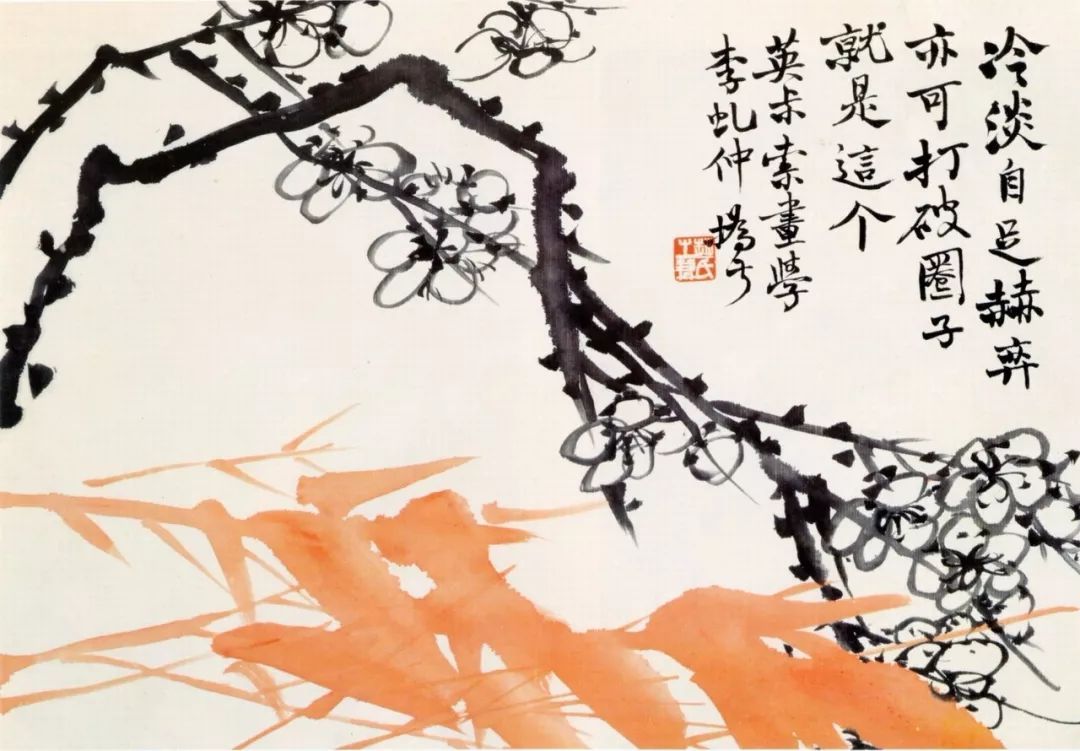 冷淡自足赫弈
亦可打破圈子
就是這个
英卡索畫學
李虬仲